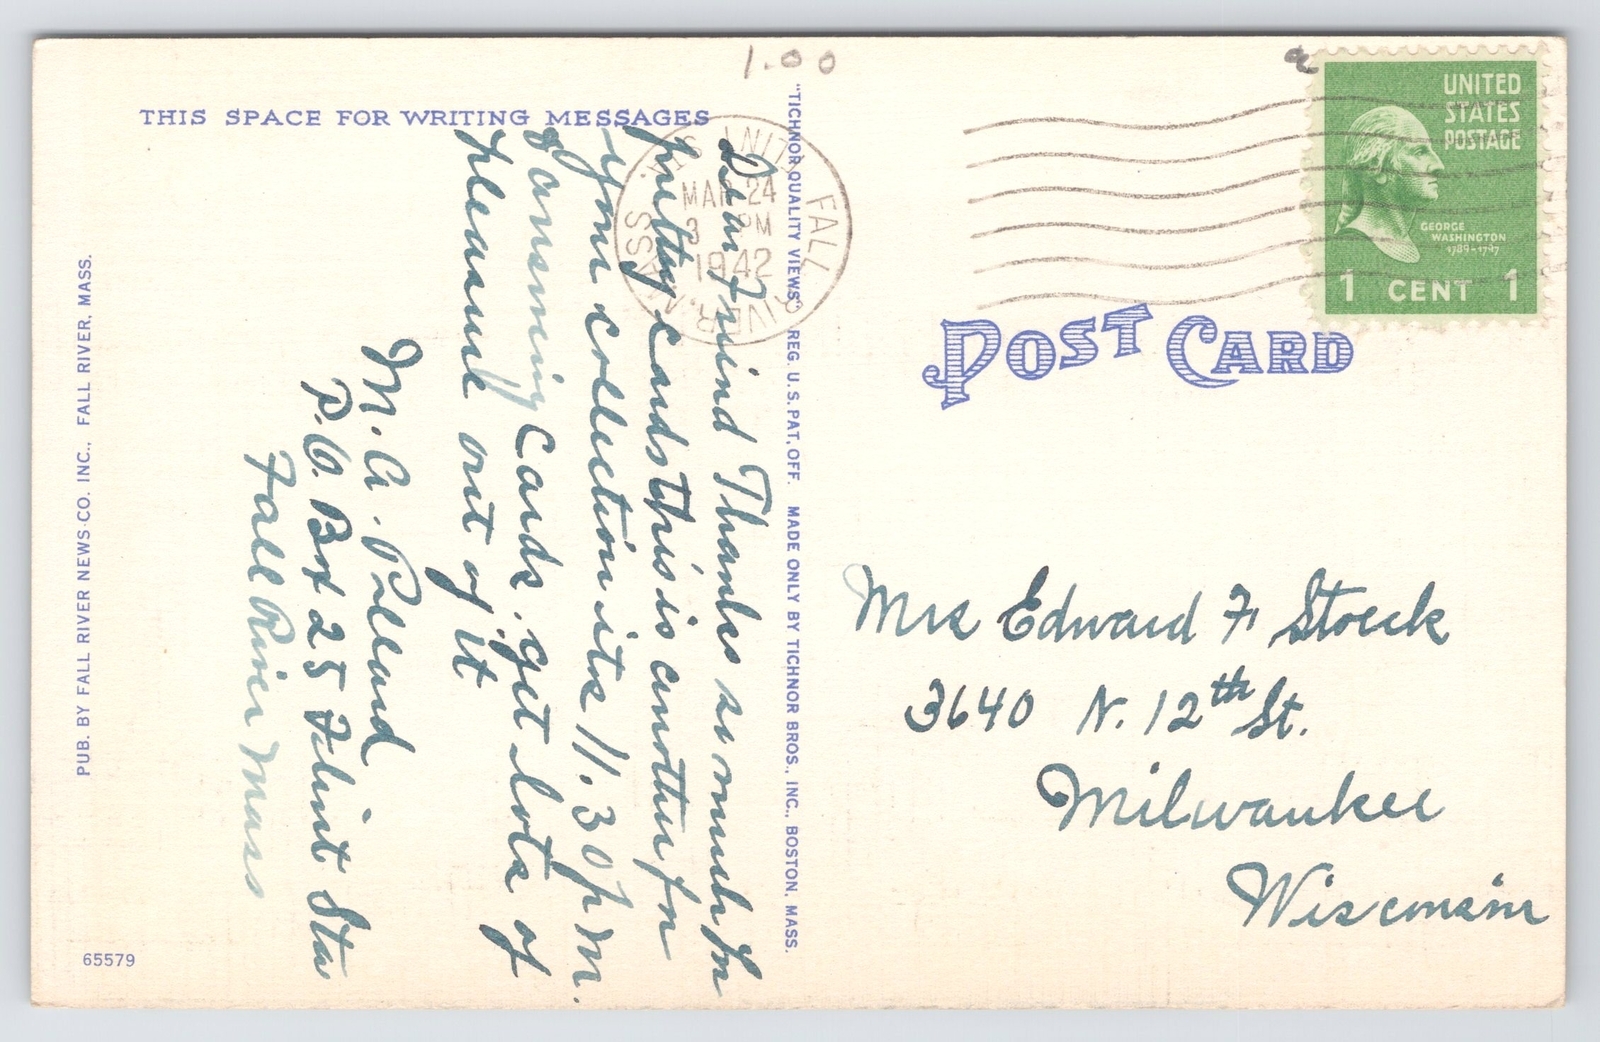 1.00
a
THIS SPACE FOR WRITING MESSAGES
Dear Friend Thanks so much for
pretty cards this is another for
your collection its 11.30 P M.
answering cards. get lots of
pleasure out of it
M. A. Pollard
P.O. Box 25 Flint Sta
Fall River Mass
PUB. BY FALL RIVER NEWS CO. INC., FALL RIVER, MASS.
65579
"TICHNOR QUALITY VIEWS" REG. U.S. PAT. OFF. MADE ONLY BY TICHNOR BROS., INC., BOSTON, MASS.
FALL RIVER, MASS
MAR 24
3 PM
1942
UNITED
STATES
POSTAGE
GEORGE
WASHINGTON
1789-1797
1 CENT 1
POST CARD
Mrs Edward F. Stoeck
3640 N. 12th St.
Milwaukee
Wisconsin